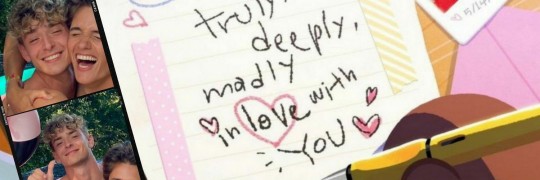 truly,
deeply,
madly
in love with
YOU